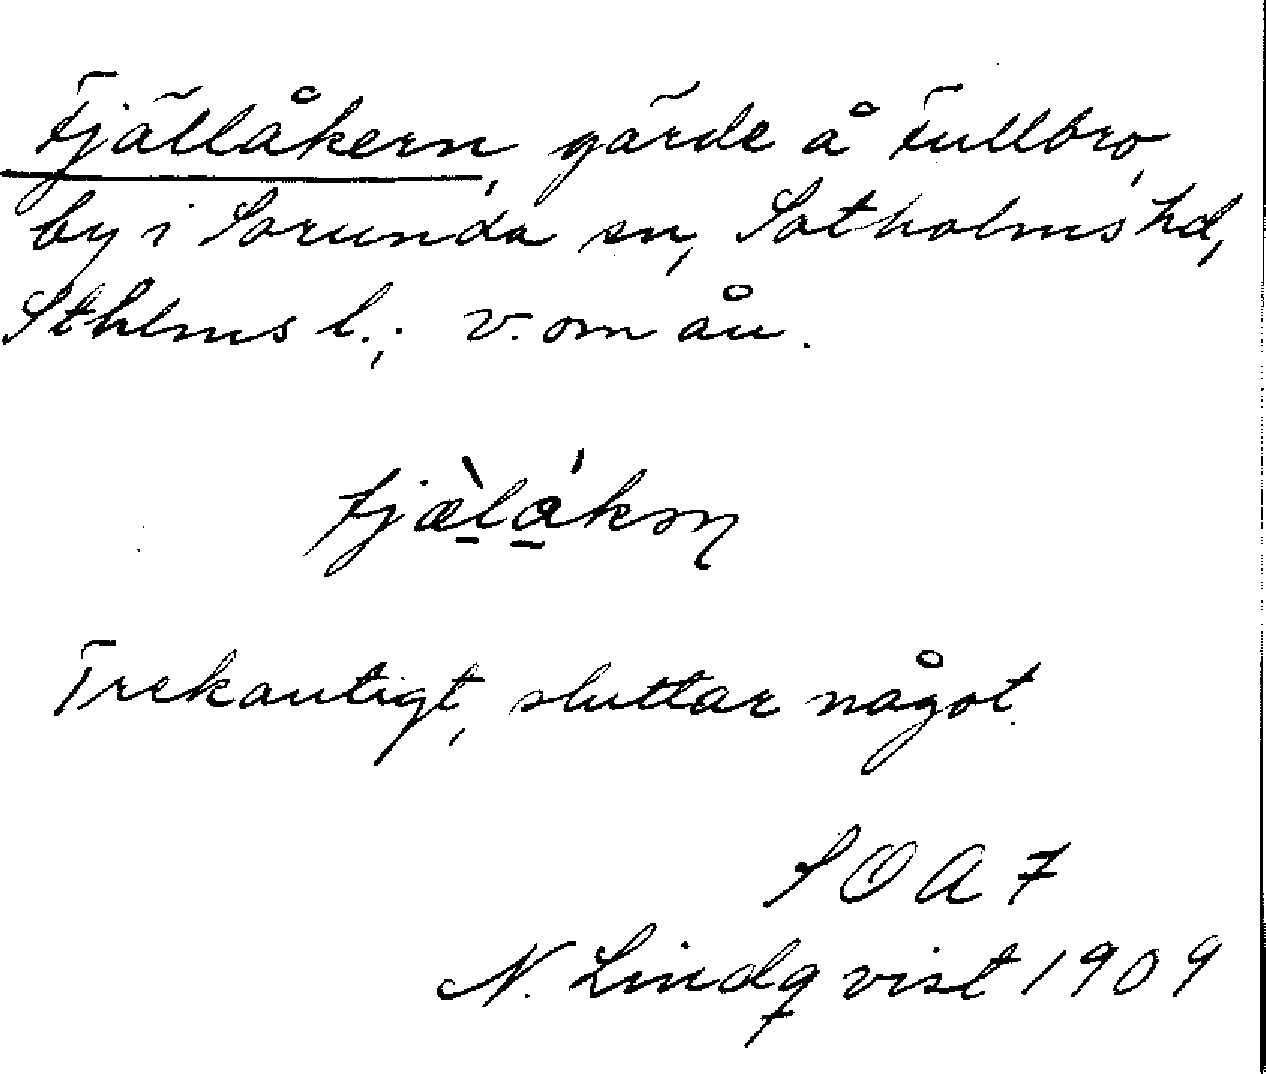 Fjällåkern, gärde å Fullbro
by i Sorunda sn, Sotholms hd,
Sthlms l.; v. om ån.
fjæ̀lákən
Trekantigt, sluttar något.
SOAF
N. Lindqvist 1909